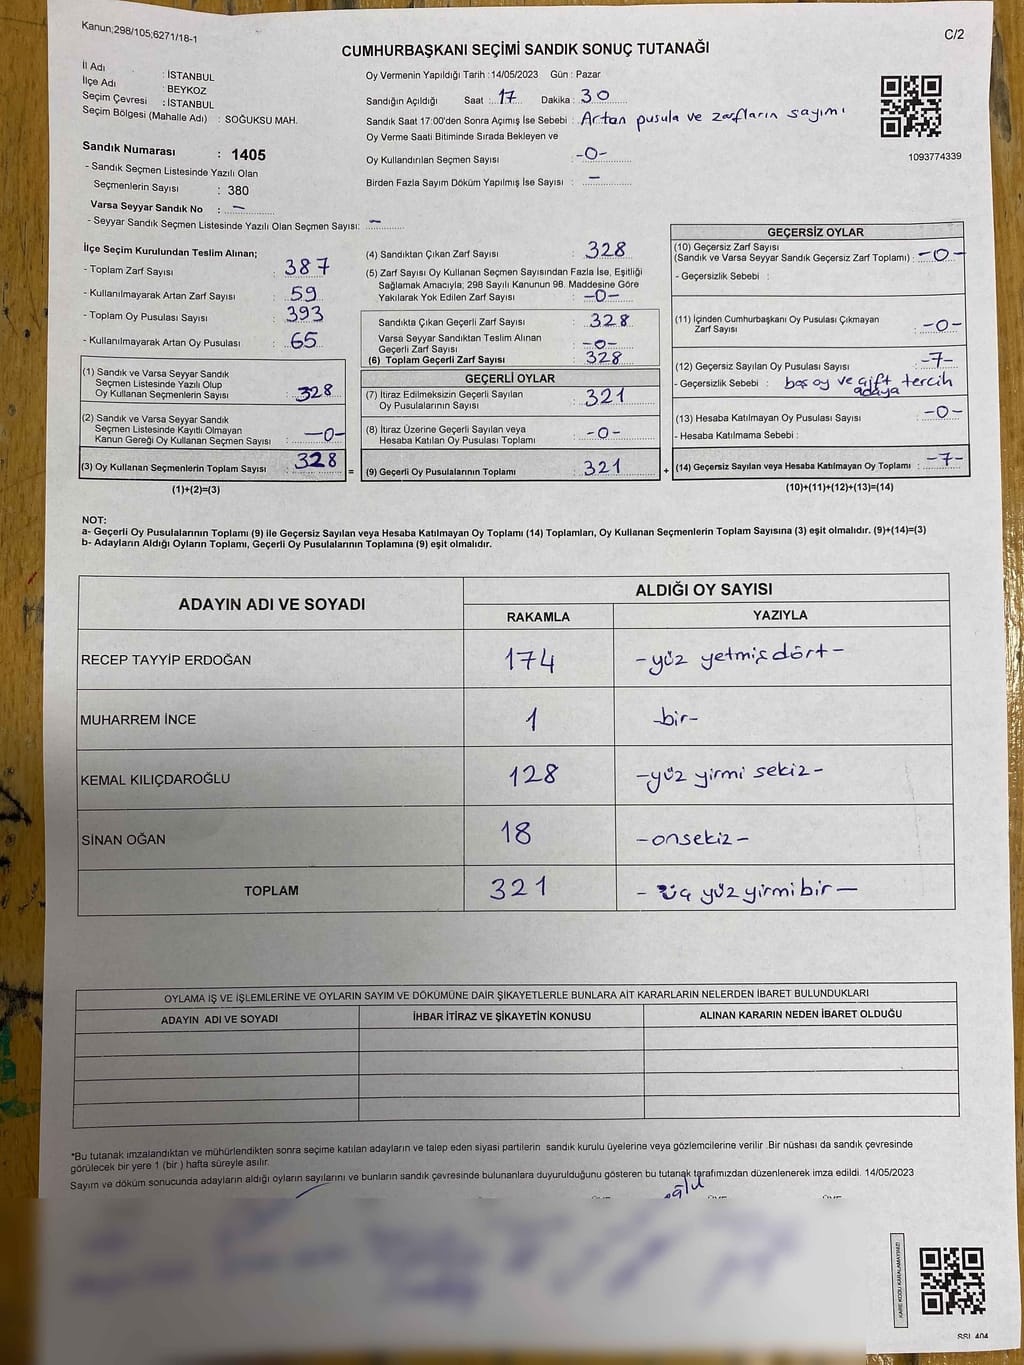 Kanun;298/105;6271/18-1
C/2
CUMHURBAŞKANI SEÇİMİ SANDIK SONUÇ TUTANAĞI
İl Adı : İSTANBUL
İlçe Adı : BEYKOZ
Seçim Çevresi : İSTANBUL
Seçim Bölgesi (Mahalle Adı) : SOĞUKSU MAH.
Sandık Numarası : 1405
- Sandık Seçmen Listesinde Yazılı Olan
Seçmenlerin Sayısı : 380
Varsa Seyyar Sandık No : -
- Seyyar Sandık Seçmen Listesinde Yazılı Olan Seçmen Sayısı: -
Oy Vermenin Yapıldığı Tarih : 14/05/2023 Gün : Pazar
Sandığın Açıldığı Saat : 17 Dakika : 30
Sandık Saat 17:00'den Sonra Açımış İse Sebebi : Artan pusula ve zarfların sayımı
Oy Verme Saati Bitiminde Sırada Bekleyen ve
Oy Kullandırılan Seçmen Sayısı : -0-
Birden Fazla Sayım Döküm Yapılmış İse Sayısı : -
1093774339
İlçe Seçim Kurulundan Teslim Alınan;
- Toplam Zarf Sayısı : 387
- Kullanılmayarak Artan Zarf Sayısı : 59
- Toplam Oy Pusulası Sayısı : 393
- Kullanılmayarak Artan Oy Pusulası : 65
(1) Sandık ve Varsa Seyyar Sandık
Seçmen Listesinde Yazılı Olup
Oy Kullanan Seçmenlerin Sayısı : 328
(2) Sandık ve Varsa Seyyar Sandık
Seçmen Listesinde Kayıtlı Olmayan
Kanun Gereği Oy Kullanan Seçmen Sayısı : -0-
(3) Oy Kullanan Seçmenlerin Toplam Sayısı : 328 =
(1)+(2)=(3)
(4) Sandıktan Çıkan Zarf Sayısı : 328
(5) Zarf Sayısı Oy Kullanan Seçmen Sayısından Fazla İse, Eşitliği
Sağlamak Amacıyla, 298 Sayılı Kanunun 98. Maddesine Göre
Yakılarak Yok Edilen Zarf Sayısı : -0-
Sandıkta Çıkan Geçerli Zarf Sayısı : 328
Varsa Seyyar Sandıktan Teslim Alınan
Geçerli Zarf Sayısı : -0-
(6) Toplam Geçerli Zarf Sayısı : 328
GEÇERLİ OYLAR
(7) İtiraz Edilmeksizin Geçerli Sayılan
Oy Pusulalarının Sayısı : 321
(8) İtiraz Üzerine Geçerli Sayılan veya
Hesaba Katılan Oy Pusulası Toplamı : -0-
(9) Geçerli Oy Pusulalarının Toplamı : 321 +
GEÇERSİZ OYLAR
(10) Geçersiz Zarf Sayısı
(Sandık ve Varsa Seyyar Sandık Geçersiz Zarf Toplamı) : -0-
- Geçersizlik Sebebi :
(11) İçinden Cumhurbaşkanı Oy Pusulası Çıkmayan
Zarf Sayısı : -0-
(12) Geçersiz Sayılan Oy Pusulası Sayısı : -7-
- Geçersizlik Sebebi : boş oy ve çift tercih
adaya
(13) Hesaba Katılmayan Oy Pusulası Sayısı : -0-
- Hesaba Katılmama Sebebi :
(14) Geçersiz Sayılan veya Hesaba Katılmayan Oy Toplamı : -7-
(10)+(11)+(12)+(13)=(14)
NOT:
a- Geçerli Oy Pusulalarının Toplamı (9) ile Geçersiz Sayılan veya Hesaba Katılmayan Oy Toplamı (14) Toplamları, Oy Kullanan Seçmenlerin Toplam Sayısına (3) eşit olmalıdır. (9)+(14)=(3)
b- Adayların Aldığı Oyların Toplamı, Geçerli Oy Pusulalarının Toplamına (9) eşit olmalıdır.
ADAYIN ADI VE SOYADI ALDIĞI OY SAYISI
RAKAMLA YAZIYLA
RECEP TAYYİP ERDOĞAN 174 -yüz yetmiş dört-
MUHARREM İNCE 1 -bir-
KEMAL KILIÇDAROĞLU 128 -yüz yirmi sekiz-
SİNAN OĞAN 18 -onsekiz-
TOPLAM 321 -üç yüz yirmi bir-
OYLAMA İŞ VE İŞLEMLERİNE VE OYLARIN SAYIM VE DÖKÜMÜNE DAİR ŞİKAYETLERLE BUNLARA AİT KARARLARIN NELERDEN İBARET BULUNDUKLARI
ADAYIN ADI VE SOYADI İHBAR İTİRAZ VE ŞİKAYETİN KONUSU ALINAN KARARIN NEDEN İBARET OLDUĞU
*Bu tutanak imzalandıktan ve mühürlendikten sonra seçime katılan adayların ve talep eden siyasi partilerin sandık kurulu üyelerine veya gözlemcilerine verilir .Bir nüshası da sandık çevresinde
görülecek bir yere 1 (bir ) hafta süreyle asılır.
Sayım ve döküm sonucunda adayların aldığı oyların sayılarını ve bunların sandık çevresinde bulunanlara duyurulduğunu gösteren bu tutanak tarafımızdan düzenlenerek imza edildi. 14/05/2023
KARE KODU KARALAMAYINIZ!